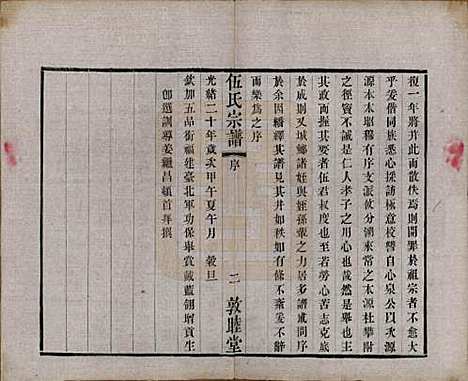 復一年將并此而散佚焉則開罪於祖宗者不愈大
乎爰偕同族悉心採訪極意校讐自心泉公以次源
源本本昭穆有序支派攸分溯來常之太源杜攀附
之徑竇不誠是仁人孝子之用心也然是舉也主
其政而握其要者伍君叔度也至若勞心苦志克底
於成則又珹鄉諸姪與姪孫輩之力居多譜成問序
於余因繙繹其譜見其井如秩如有條不紊爰不禁
而樂爲之序
光緒二十年歲次甲午夏午月 穀旦
欽加五品銜福建臺北軍功保舉賞戴藍翎增貢生
卽選訓導姜繼昌頓首拜撰
伍氏宗譜 序 二 敦睦堂